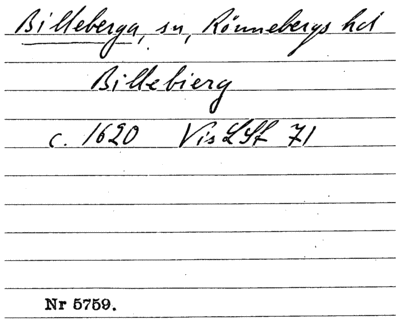 Billeberga, sn, Rönnebergs hd
Billebierg
c. 1620 Vis LSf 71
Nr 5759.